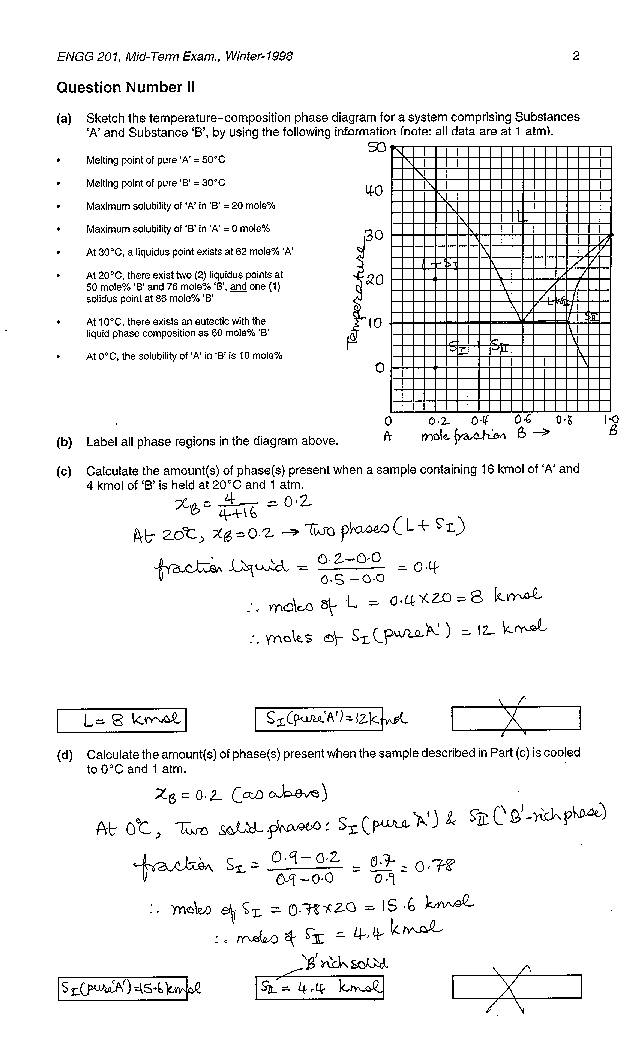 ENGG 201, Mid-Term Exam., Winter-1998
2
Question Number II
(a) Sketch the temperature-composition phase diagram for a system comprising Substances
'A' and Substance 'B', by using the following information (note: all data are at 1 atm).
• Melting point of pure 'A' = 50°C
• Melting point of pure 'B' = 30°C
• Maximum solubility of 'A' in 'B' = 20 mole%
• Maximum solubility of 'B' in 'A' = 0 mole%
• At 30°C, a liquidus point exists at 62 mole% 'A'
• At 20°C, there exist two (2) liquidus points at
50 mole% 'B' and 76 mole% 'B', and one (1)
solidus point at 86 mole% 'B'
• At 10°C, there exists an eutectic with the
liquid phase composition as 60 mole% 'B'
• At 0°C, the solubility of 'A' in 'B' is 10 mole%
50
40
30
20
10
0
Temperature
L
L+SI
L+SII
SII
SI + SII
0 0.2 0.4 0.6 0.8 1.0
A mole fraction B → B
(b) Label all phase regions in the diagram above.
(c) Calculate the amount(s) of phase(s) present when a sample containing 16 kmol of 'A' and
4 kmol of 'B' is held at 20°C and 1 atm.
xB = 4/(4+16) = 0.2
At 20°C, xB = 0.2 → Two phases (L + SI)
fraction liquid = (0.2-0.0)/(0.5-0.0) = 0.4
∴ moles of L = 0.4×20 = 8 kmol
∴ moles of SI (pure 'A') = 12 kmol
L = 8 kmol
SI (pure 'A') = 12 kmol
(d) Calculate the amount(s) of phase(s) present when the sample described in Part (c) is cooled
to 0°C and 1 atm.
xB = 0.2 (as above)
At 0°C, Two solid phases: SI (pure 'A') & SII ('B'-rich phase)
fraction SI = (0.9-0.2)/(0.9-0.0) = 0.7/0.9 = 0.78
∴ moles of SI = 0.78×20 = 15.6 kmol
∴ moles of SII = 4.4 kmol
'B' rich solid
SI (pure 'A') = 15.6 kmol
SII = 4.4 kmol